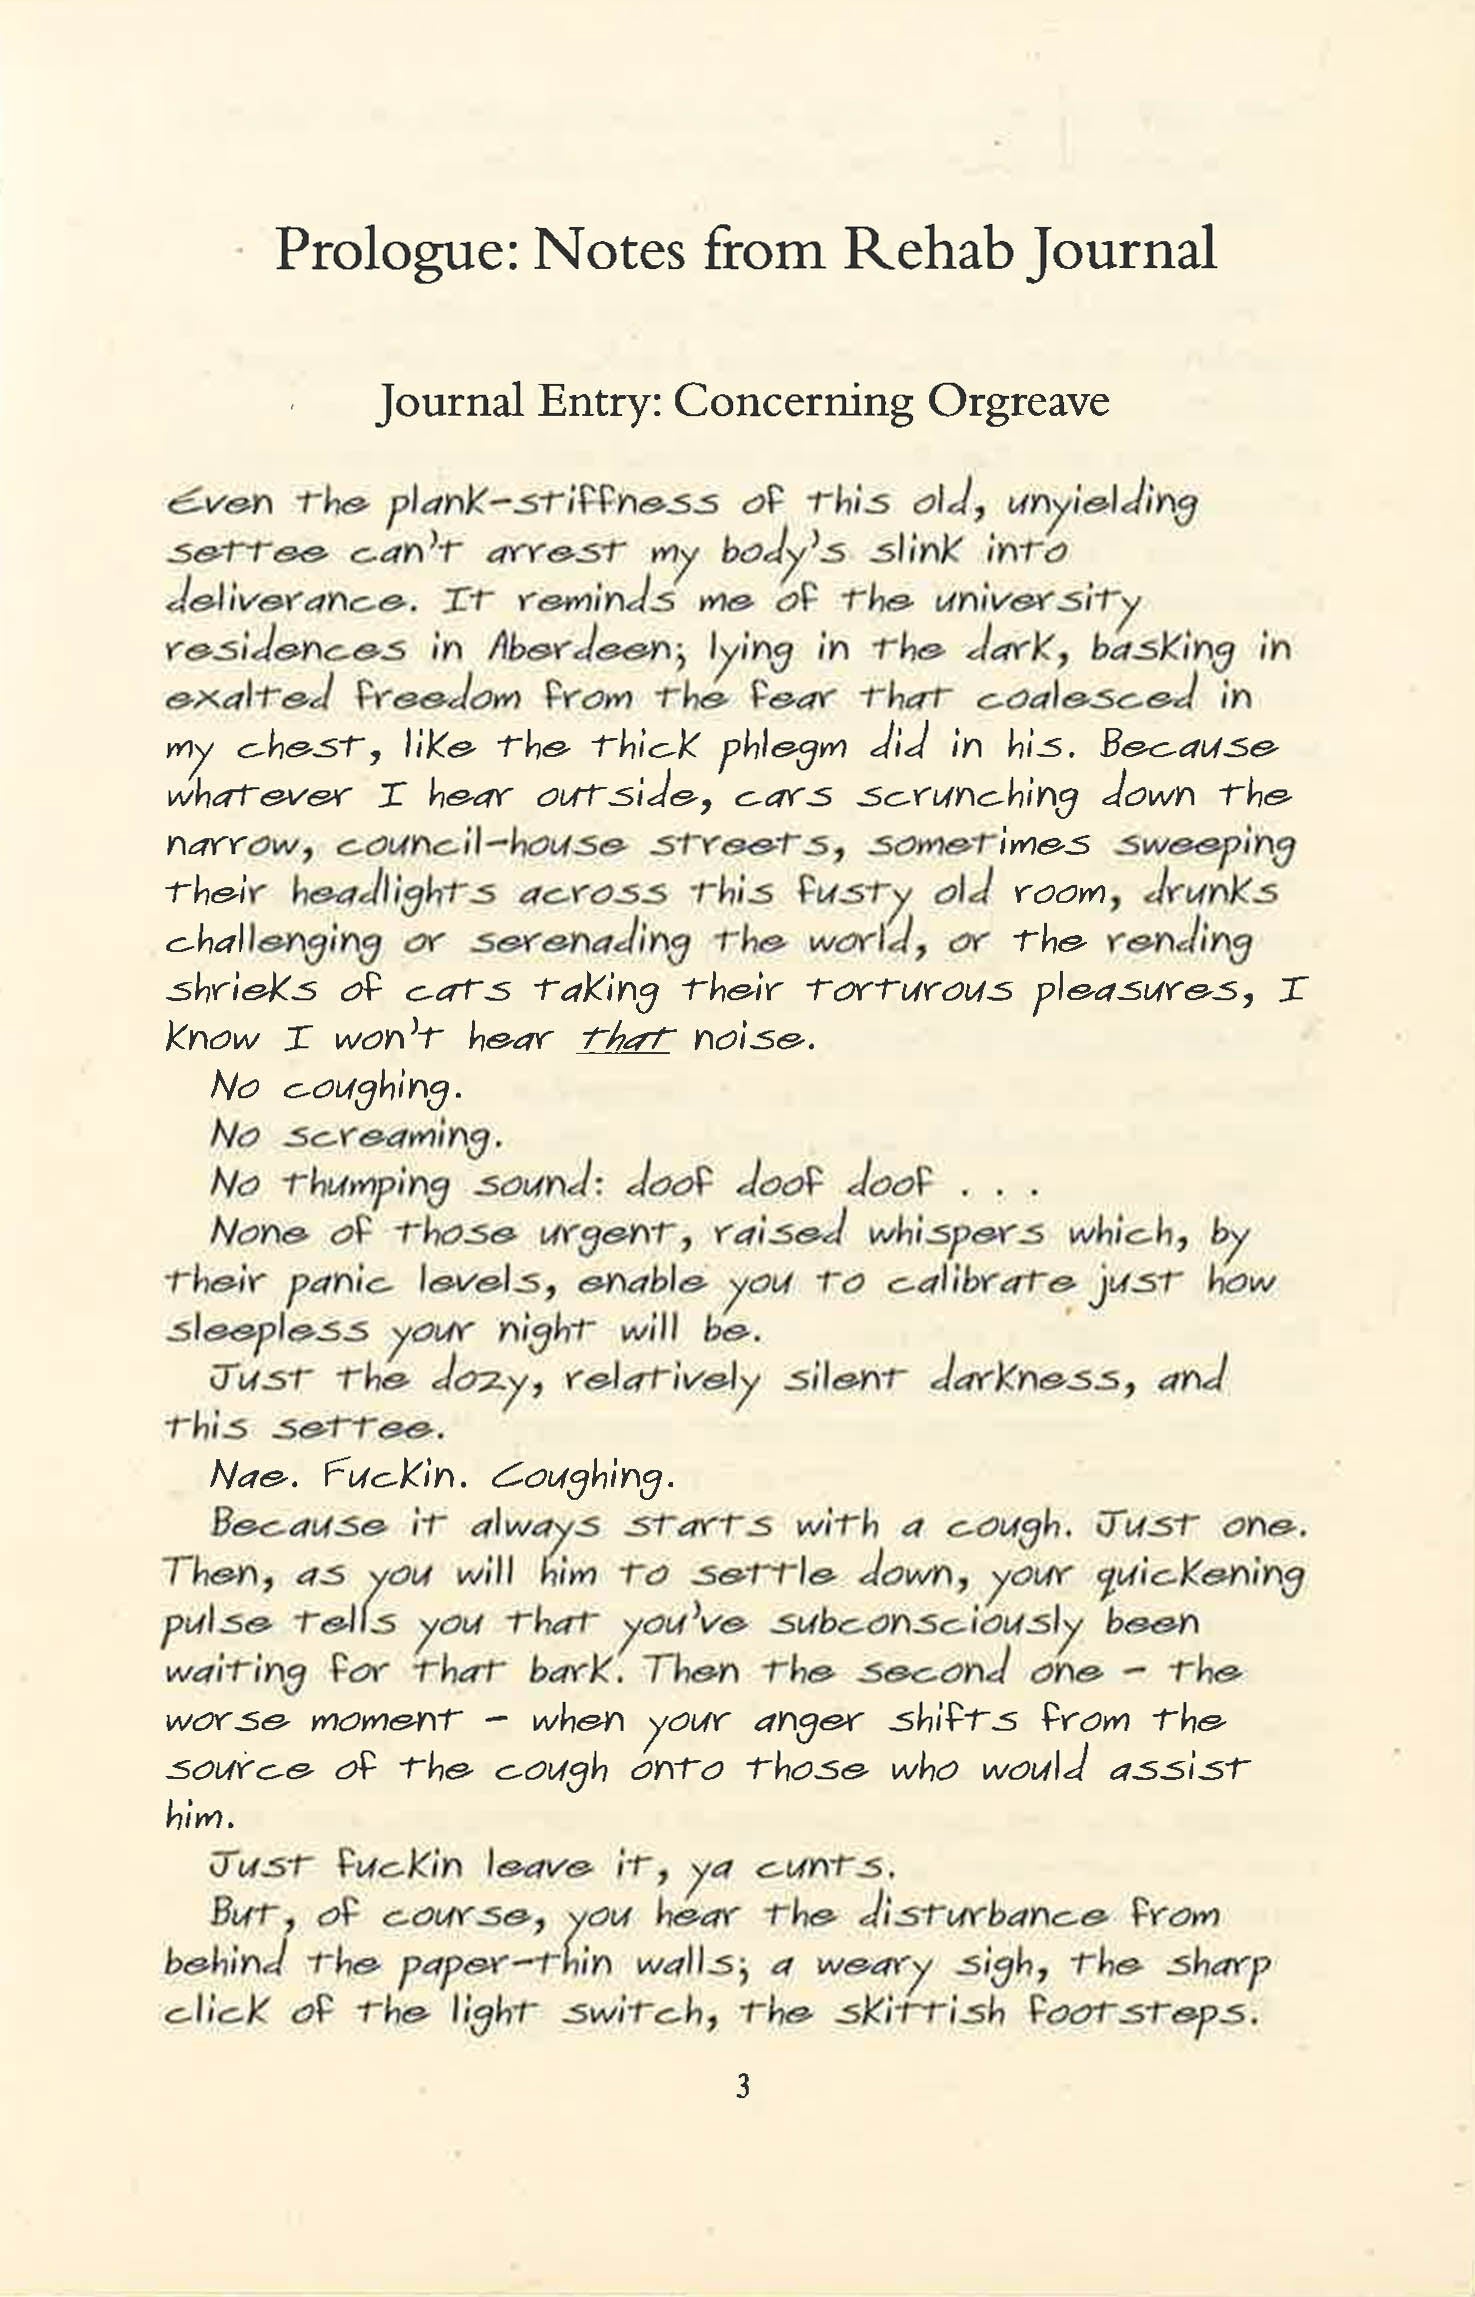 Prologue: Notes from Rehab Journal
Journal Entry: Concerning Orgreave
Even the plank-stiffness of this old, unyielding
settee can't arrest my body's slink into
deliverance. It reminds me of the university
residences in Aberdeen; lying in the dark, basking in
exalted freedom from the fear that coalesced in
my chest, like the thick phlegm did in his. Because
whatever I hear outside, cars scrunching down the
narrow, council-house streets, sometimes sweeping
their headlights across this fusty old room, drunks
challenging or serenading the world, or the rending
shrieks of cats taking their torturous pleasures, I
know I won't hear that noise.
No coughing.
No screaming.
No thumping sound: doof doof doof . . .
None of those urgent, raised whispers which, by
their panic levels, enable you to calibrate just how
sleepless your night will be.
Just the dozy, relatively silent darkness, and
this settee.
Nae. Fuckin. Coughing.
Because it always starts with a cough. Just one.
Then, as you will him to settle down, your quickening
pulse tells you that you've subconsciously been
waiting for that bark. Then the second one – the
worse moment – when your anger shifts from the
source of the cough onto those who would assist
him.
Just fuckin leave it, ya cunts.
But, of course, you hear the disturbance from
behind the paper-thin walls; a weary sigh, the sharp
click of the light switch, the skittish footsteps.
3